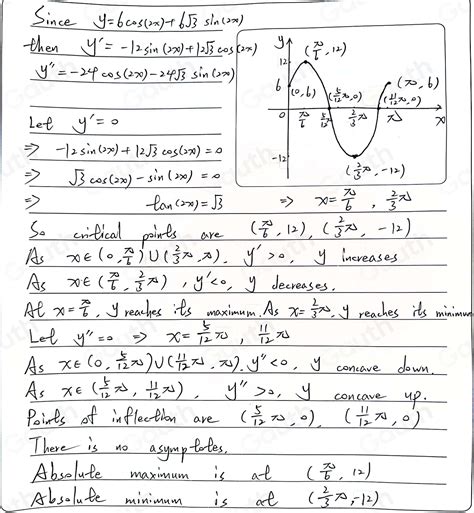 Since y=6cos(2x)+6√3 sin(2x)
then y'=-12sin(2x)+12√3 cos(2x)
y''=-24cos(2x)-24√3 sin(2x)
y
12
6
0
-12
(π/6, 12)
(0, 6)
(5/12 π, 0)
(11/12 π, 0)
(π, 6)
π/6
5/12 π
2/3 π
π
x
(2/3 π, -12)
Let y'=0
⇒ -12sin(2x)+12√3 cos(2x)=0
⇒ √3 cos(2x)-sin(2x)=0
⇒ tan(2x)=√3 ⇒ x=π/6, 2/3 π
So critical points are (π/6, 12), (2/3 π, -12)
As x∈(0, π/6)∪(2/3 π, π), y'>0, y increases
As x∈(π/6, 2/3 π), y'<0, y decreases.
At x=π/6, y reaches its maximum. As x=2/3 π, y reaches its minimum
Let y''=0 ⇒ x=5/12 π, 11/12 π
As x∈(0, 5/12 π)∪(11/12 π, π), y''<0, y concave down.
As x∈(5/12 π, 11/12 π), y''>0, y concave up.
Points of inflection are (5/12 π, 0), (11/12 π, 0)
There is no asymptotes.
Absolute maximum is at (π/6, 12)
Absolute minimum is at (2/3 π, -12)